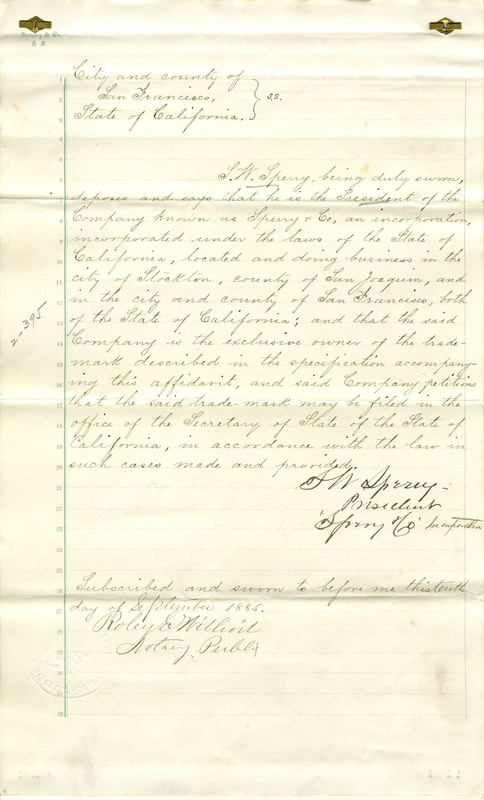 City and county of
San Francisco,
State of California.
} s.s.
S. W. Sperry, being duly sworn,
deposes and says that he is the President of the
Company known as Sperry & Co, an incorporation,
incorporated under the laws of the State of
California, located and doing business in the
city of Stockton, county of San Joaquin, and
in the city and county of San Francisco, both
of the State of California; and that the said
Company is the exclusive owner of the trade-
mark described in the specification accompany-
ing this affidavit, and said Company petitions
that the said trade-mark may be filed in the
office of the Secretary of State of the State of
California, in accordance with the law in
such cases made and provided.
S W Sperry
President
Sperry & Co Incorporation
Subscribed and sworn to before me this tenth
day of September 1885.
Notary Public
395
1
2
3
4
5
6
7
8
9
10
11
12
13
14
15
16
17
18
19
20
21
22
23
24
25
26
27
28
29
30
31
32